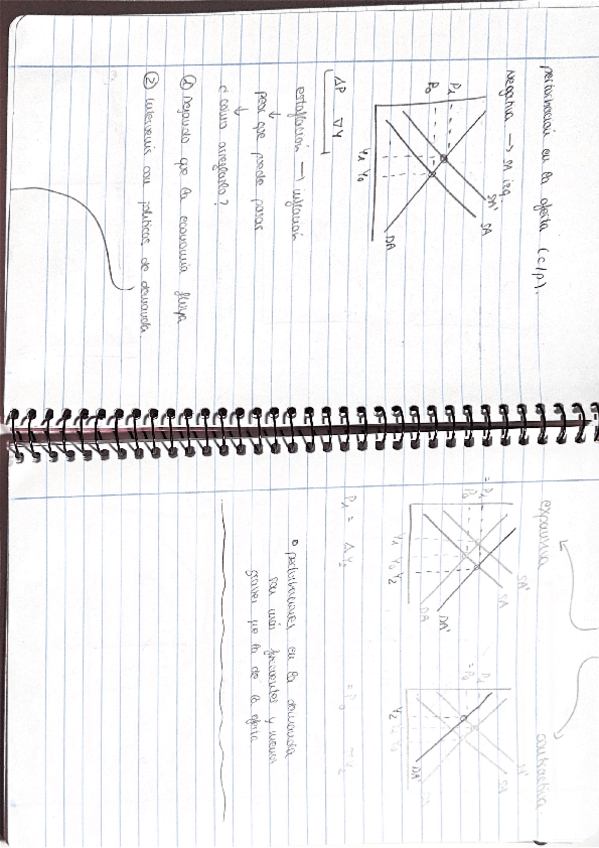 perturbación en la oferta (c/p).
negativa → SA izq
P1
P0
SA'
SA
DA
Y1 Y0
ΔP ∇Y
estanflación → inflación
peor que puede pasar
¿cómo arreglarlo?
① dejando que la economía fluya
② intervenir con políticas de demanda.
expansiva
contractiva
= P1
P0
SA'
SA
DA'
DA
Y1 Y0 Y2
P1
= P0
SA'
SA
DA'
DA
Y2
P1 = ΔY2
= P0
Y2
perturbaciones en la demanda
son más frecuentes y menos
graves que la de la oferta